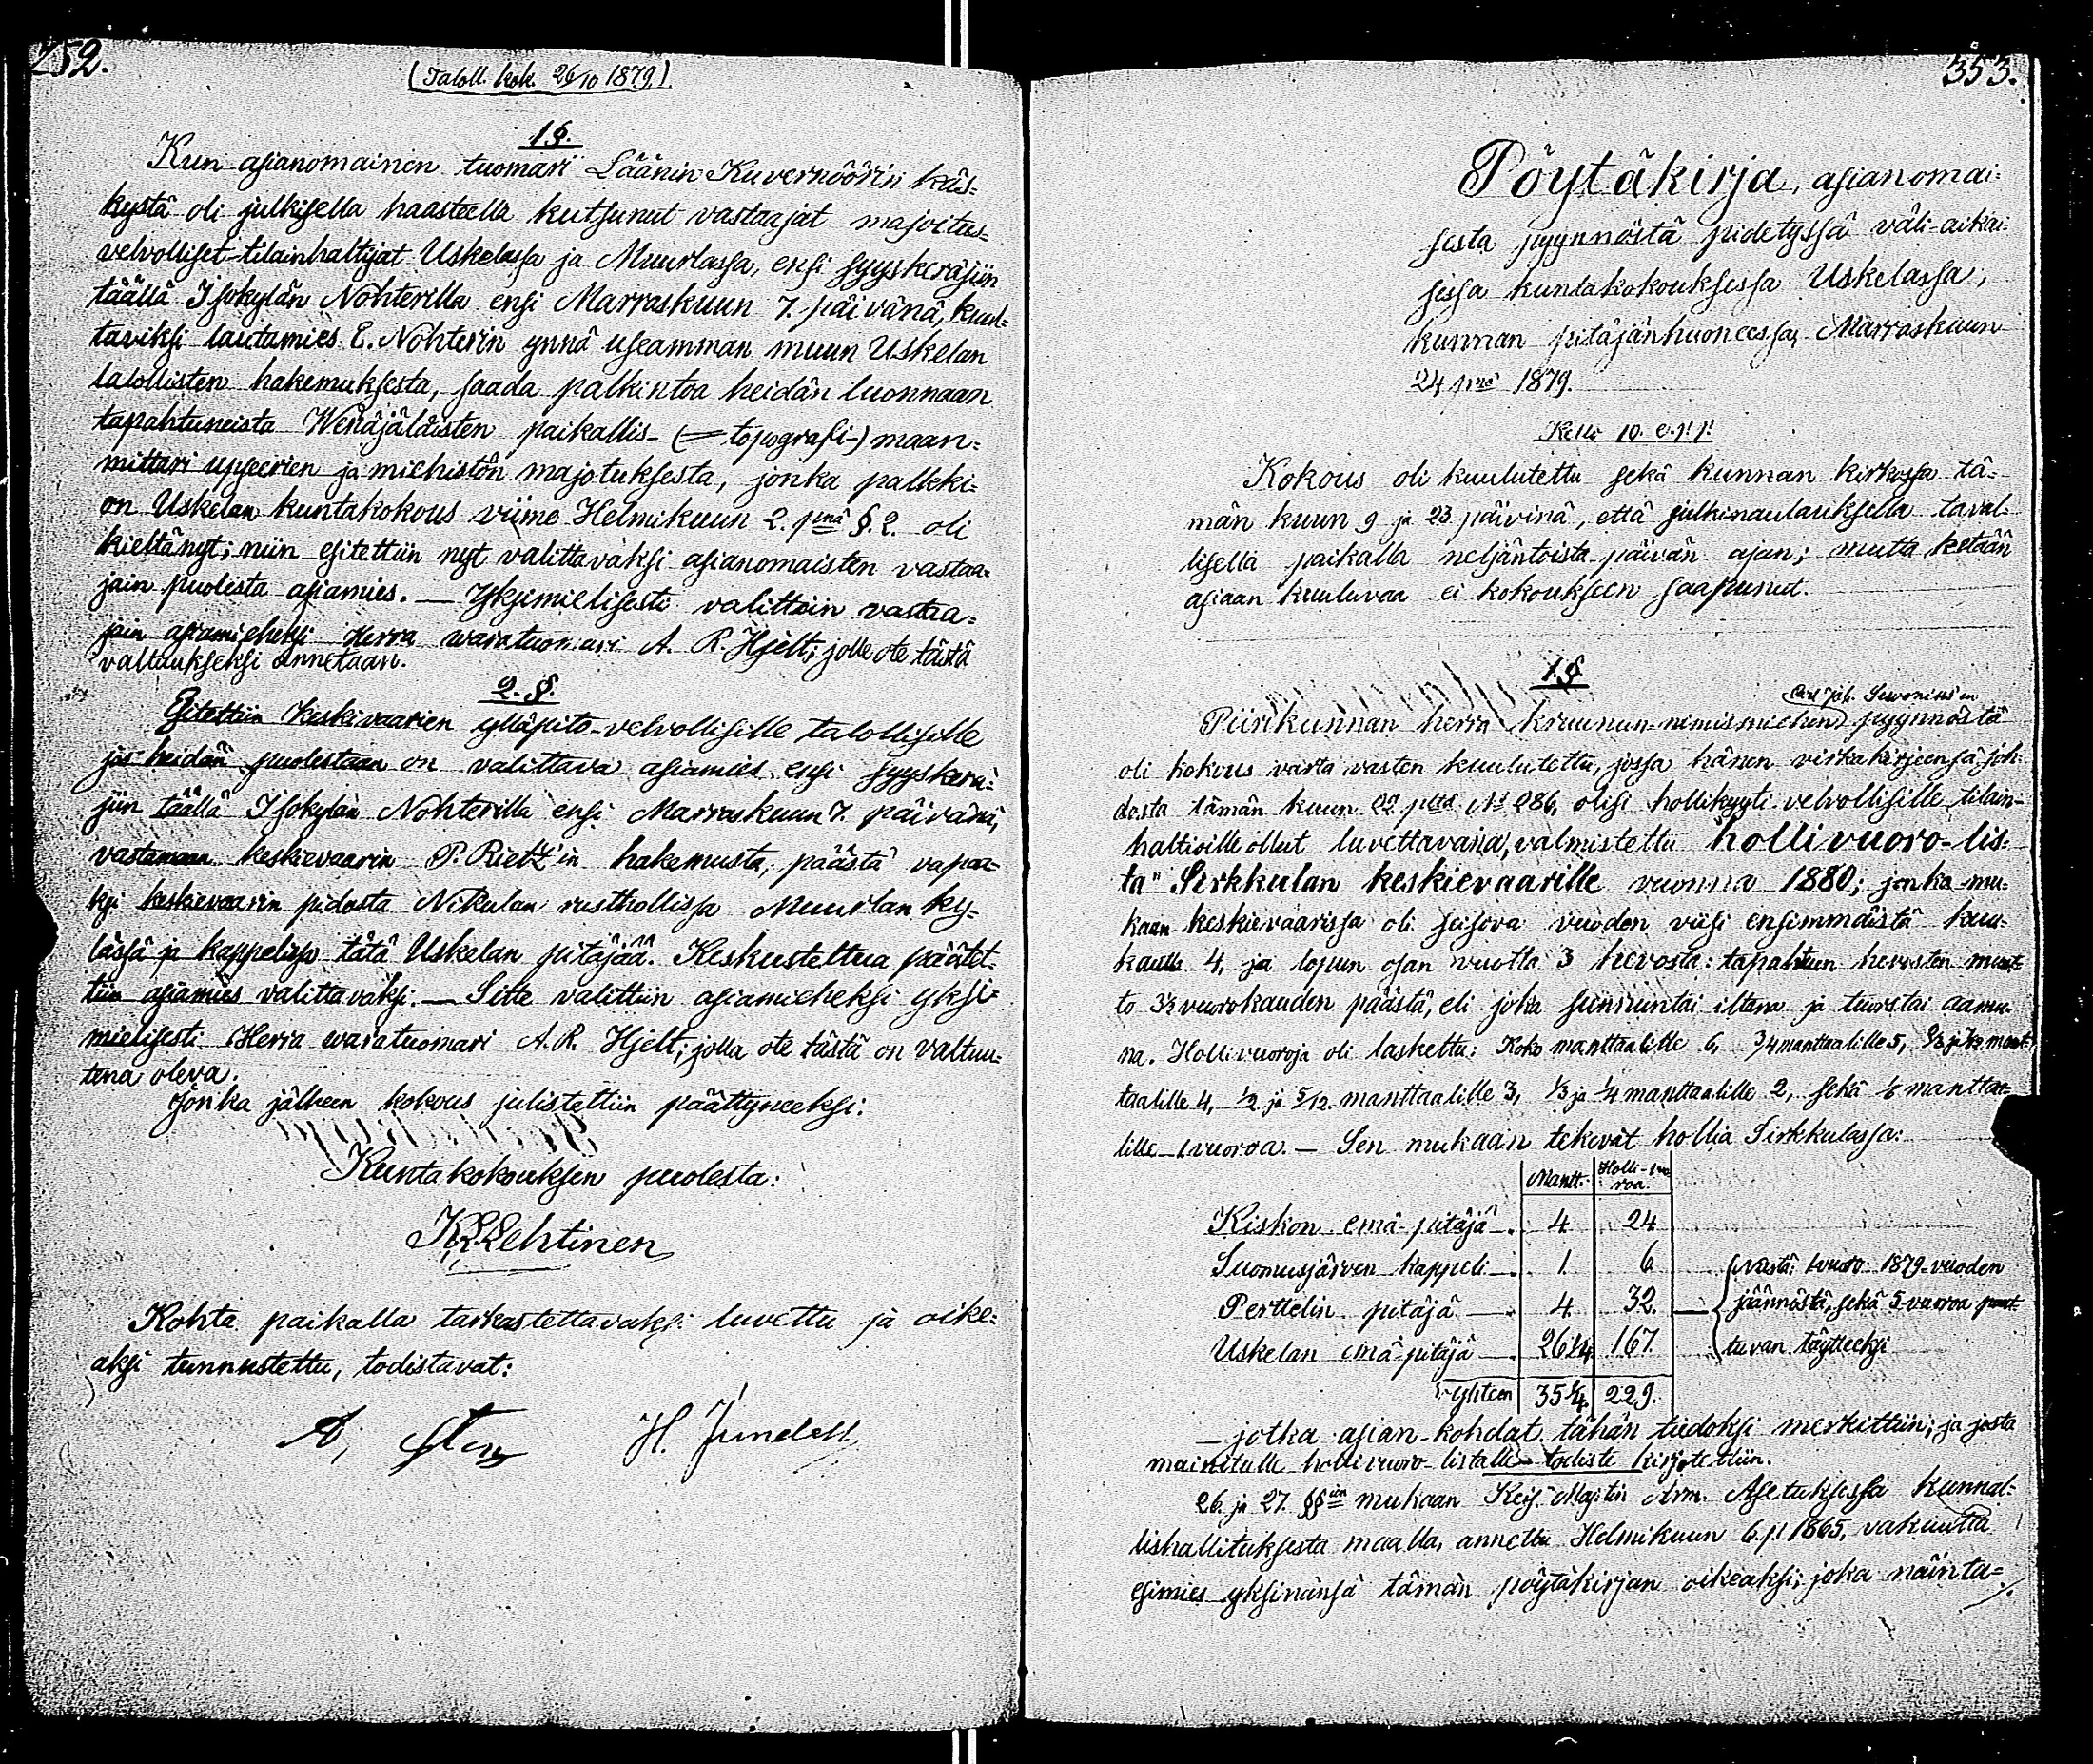 252.
(Taloll. kok. 26/10 1879.)
1.§.
Kun asianomainen tuomari Läänin Kuvernöörin käs-
kystä oli julkisella haasteella kutsunut vastaajat majoitus-
velvolliset-tilainhaltijat Uskelassa ja Muurlassa, ensi syyskäräjiin
täällä Isokylän Nohterilla ensi Marraskuun 7. päivänä, kuul-
taviksi lautamies E. Nohterin ynnä useamman muun Uskelan
talollisten hakemuksesta, saada palkintoa heidän luonnaan
tapahtuneista Wenäjäläisten paikallis- (= topografi-) maan-
mittari upseerien ja miehistön majotuksesta, jonka palkki-
on Uskelan kuntakokous viime Helmikuun 2. pnä §. 2. oli
kieltänyt; niin esitettiin nyt valittavaksi asianomaisten vastaa-
jain puolesta asiamies. — Yksimielisesti valittiin vastaa-
jain asiamieheksi Herra waratuomari A. R. Hjelt; jolle ote tästä
valtuukseksi annetaan.
2. §.
Esitettiin Keskivaarien ylläpito-velvollisille talollisille
jos heidän puolestaan on valittava asiamies ensi syyskärä-
jiin täällä Isokylän Nohterilla ensi Marraskuun 7. päivänä,
vastamaan keskievaarin P. Riett'in hakemusta, päästä vapaa-
ksi keskievaarin pidosta Nikulan rusthollissa Muurlan ky-
lässä ja kappelissa tätä Uskelan pitäjää. Keskusteltua päätet-
tiin asiamies valittavaksi. — Sitte valittiin asiamieheksi yksi-
mielisesti Herra waratuomari A. R. Hjelt; jolla ote tästä on valtuu-
tena oleva.
Jonka jälkeen kokous julistettiin päättyneeksi.
Kuntakokouksen puolesta:
K. R. Lehtinen
Kohta paikalla tarkastettavaksi luvettu ja oike-
aksi tunnustettu, todistavat:
H. Jundell
353.
Pöytäkirja, asianomai-
sesta pyynnöstä pidetyssä väli-aikai-
sessa kuntakokouksessa Uskelassa,
kunnan pitäjänhuoneessa, Marraskuun
24 pnä 1879.
Kello 10. e.p.p.
Kokous oli kuulutettu sekä kunnan kirkossa tä-
män kuun 9 ja 23 päivinä, että julkinaulauksella taval-
lisella paikalla neljäntoista päivän ajan; mutta ketään
asiaan kuuluvaa ei kokoukseen saapunut.
1.§.
Piirikunnan herra kruunun-nimismiehen pyynnöstä
oli kokous varta vasten kuulutettu, jossa hänen virkakirjeensä joh-
dosta tämän kuun 22. pltä No 286, olisi hollikyyti velvollisille tilain-
haltioille ollut luvettavana, valmistettu "hollivuoro-lis-
ta" Sirkkulan keskievaarille vuonna 1880; jonka mu-
kaan keskievaarissa oli seisova vuoden viisi ensimmäistä kuu-
kautta 4, ja lopun osan vuotta 3 hevosta: tapahtuen hevosten muut-
to 3½ vuorokauden päästä, eli joka sunnuntai iltana ja tuorstai aamu-
na. Hollivuoroja oli laskettu: Koko manttaalille 6, 3/4 manttaalille 5, 2/3 ja 7/12 mant-
taalille 4, 1/2 ja 5/12 manttaalille 3, 1/3 ja 1/4 manttaalille 2, sekä 1/6 manttaa-
lille 1 vuoroa. — Sen mukaan tekevät hollia Sirkkulassa:
Mantt. Holli-vuo-
roa.
Kiskon emä-pitäjä 4 24
Suomusjärven kappeli 1 6
Perttelin pitäjä 4 32
Uskelan emä-pitäjä 26 1/4 167
Yhteen 35 1/4 229.
Näistä 1 vuoro 1879-vuoden
jäännöstä, sekä 5 vuoroa puut-
tuvan täytteeksi
— jotka asian-kohdat tähän tiedoksi merkittiin; ja josta
mainitulle hollivuoro-listalle todiste kirjotettiin.
26. ja 27. §§:in mukaan Keis. Maj:tin Arm. Asetuksessa kunnal-
lishallituksesta maalla, annettu Helmikuun 6. p. 1865, vakuutta
esimies yksinänsä tämän pöytäkirjan oikeaksi; joka näin ta-